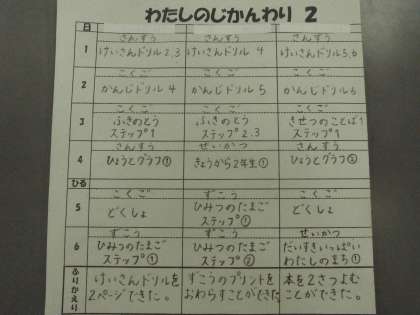 わたしのじかんわり 2
日
1 さんすう さんすう さんすう
けいさんドリル2.3 けいさんドリル 4 けいさんドリル5.6
2 こくご こくご こくご
かんじドリル 4 かんじドリル 5 かんじドリル 6
3 こくご こくご こくご
ふきのとう ふきのとう きせつのことば1
ステップ1 ステップ 2.3 ステップ1
4 さんすう せいかつ さんすう
ひょうとグラフ① きょうから2年生① ひょうとグラフ②
ひる
5 こくご ずこう こくご
どくしょ ひみつのたまご どくしょ
ステップ①
6 ずこう ずこう せいかつ
ひみつのたまご ひみつのたまご だいすきいっぱい
ステップ① ステップ② わたしのまち①
ふりかえり けいさんドリルを ずこうのプリントを 本を2さつよむ
2ページできた。 おわらすことができた ことができた。